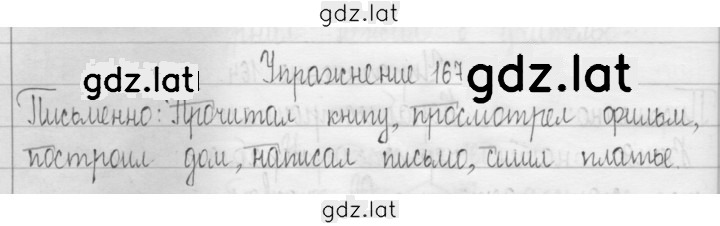 gdz.lat
Упражнение 167
gdz.lat gdz.lat
Письменно: Прочитал книгу, просмотрел фильм,
построил дом, написал письмо, сшил платье.
gdz.lat